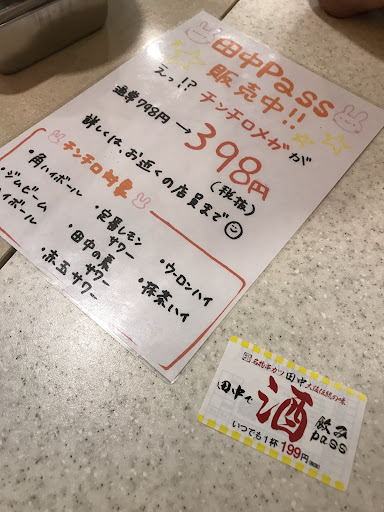 田中Pass
販売中!!
えっ!?
チンチロメガが
通常798円→398円
(税抜)
詳しくは、お近くの店員まで
チンチロ対象
・角ハイボール
・ジムビーム
ハイボール
・定番レモン
サワー
・田中の素
サワー
・赤玉
サワー
・ウーロンハイ
・抹茶ハイ
串カツ田中 大阪伝統の味
田中で
酒
飲み
pass
いつでも1杯199円